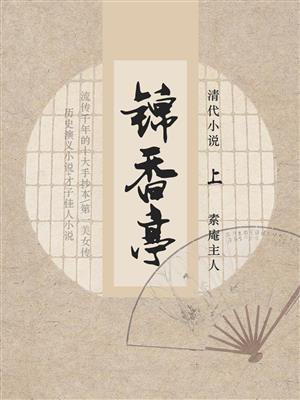 清代小说 上 素庵主人
锦香亭
流传千年的十大手抄本/第一美女传
历史演义小说/才子佳人小说